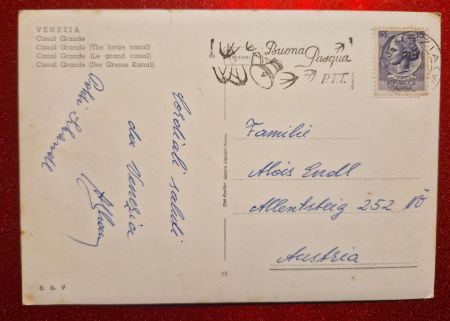 VENEZIA
Canal Grande
Canal Grande (The large canal)
Canal Grande (Le grand canal)
Canal Grande (Der Grosse Kanal)
Buona
Pasqua
P.T.T.
Cordiali saluti
da Venezia
Familie
Alois Endl
Allentsteig 252 NÖ
Austria
B. S. V